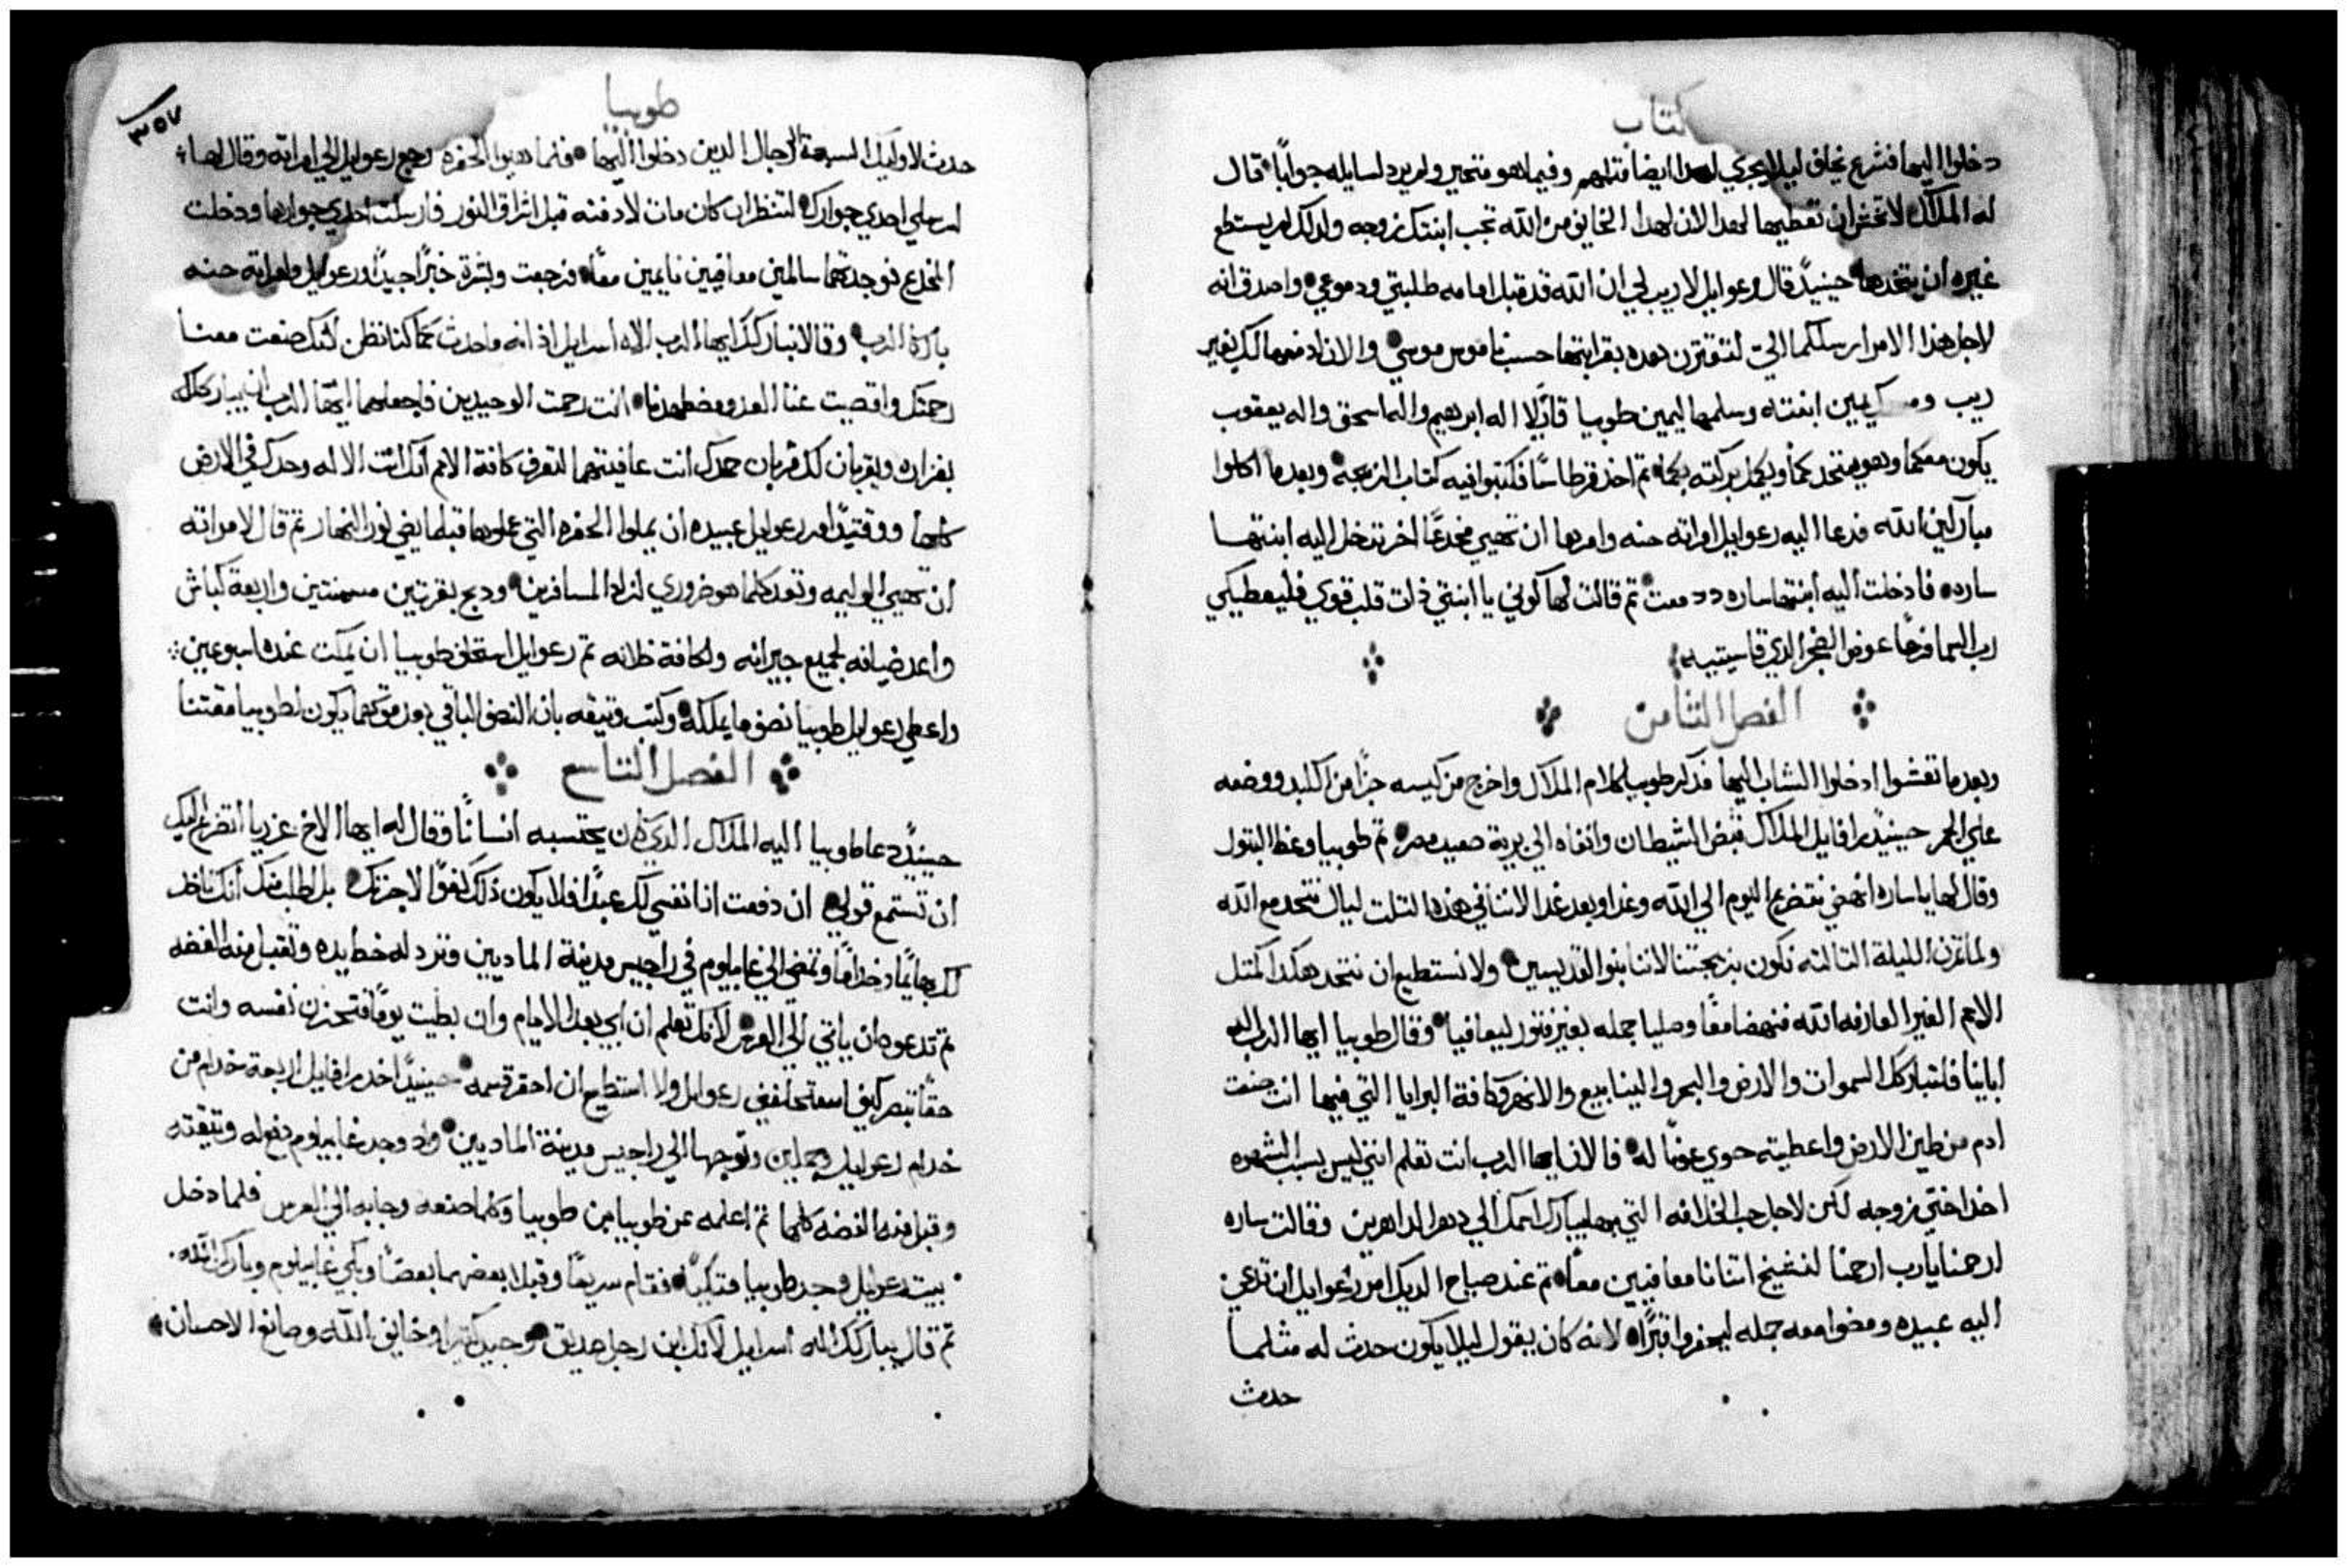 كتاب
دخلوا اليها فشرع يخاف ليلا يجري لهدا ايضا مثلهم وفيما هو متحير ولم يرد لسايله جوابًا قال
له الملاك لا تخش ان تعطيها لهدا لان لهدا الخايف من الله تجب ابنتك زوجه ولدلك لم يستطع
غيره ان يتخدها حينيدً قال رعوايل لا ريب لي ان الله قد قبل امامه طلبتي ودموعي واصدق انه
لاجل هذا الامر ارسلكما اليّ لتقترن هده بقرابتها حسب ناموس موسي والان ادفعها لك بغير
ريب يمين ابنته وسلمها ليمين طوبيا قايلا اله ابرهيم واله اسحق واله يعقوب
يكون معكما وهو يتحدكما ويكمل بركته بكما تم اخد قرطاسًا فكتبوا فيه كتاب الزيجه وبعدما اكلوا
مباركين الله فدعا اليه رعوايل امراته حنه وامرها ان تهيي مخدعًا اخر تدخل اليه ابنتها
ساره فادخلت اليه ابنتها ساره ودمعت تم قالت لها كوني يا ابنتي ذات قلب قوي فليعطيكي
رب السما فرحًا عوض الضجر الدي قاسيتيه
الفصل التامن
وبعدما تعشوا ادخلوا الشاب اليها فدكر طوبيا كلام الملاك واخرج من كيسه جزًا من الكبد ووضعه
علي الجمر حينيدً رافايل الملاك قبض الشيطان وانفاه الي برية صعيد مصر تم طوبيا وعظ البتول
وقال لها يا ساره انهضي نتضرع اليوم الي الله وغدا وبعد غد لاننا في هذه التلت ليال نتحد مع الله
ولما تمر الليلة التالته نكون بزيجتنا لاننا بنوا القديسين ولا نستطيع ان نتحد هكدا كمتل
الامم الغير العارفه الله فنهضا معًا وصليا جمله بغير فتور ليعافيا وقال طوبيا ايها الرب اله
اباينا فلتباركك السموات والارض والبحر والينابيع والانهر وكافة البرايا التي فيها انت صنعت
ادم من طين الارض واعطيته حوي عونًا له فالان ايها الرب انت تعلم انني ليس بسبب الشهوه
اخد اختي زوجه لكن لاجل حب الخلافه التي بها يبارك اسمك الي دهر الداهرين وقالت ساره
ارحمنا يارب ارحمنا لنشيخ اتنانا معافيين معًا تم عند صياح الديك امر رعوايل ان تدعي
اليه عبيده ومضوا معه جمله ليحفروا قبرًا لانه كان يقول ليلا يكون حدث له مثلما
حدث
طوبيا
٣٥٧
حدث لاوليك السبعة الرجال الدين دخلوا اليها فلما هيوا الحفره رجع رعوايل الي امراته وقال لها
ارسلي احدي جوارك لتنظر ان كان مات لادفنه قبل اشراق النور فارسلت احدي جوارها ودخلت
المخدع فوجدتهما سالمين معافيين نايمين معًا فرجعت وبشرة خبرًا جيدًا ورعوايل وامراته حنه
باركا الرب وقالا نباركك ايها الرب الاه اسرايل اذ انه ما حدث كما كنا نظن لانك صنعت معنا
رحمتك واقصيت عنا العدو مضطهدنا انت رحمت الوحيدين فاجعلهما ايها الرب ان يباركانك
بغزاره ويقربان لك قربان حمدك انت عافيتهما لتعرف كافة الامم انك انت الاله وحدك في الارض
كلها ووقتيدً امر رعوايل عبيده ان يملوا الحفره التي عملوها قبلما يضي نور النهار تم قال لامراته
ان تهيي الوليمه وتعد كلما هو ضروري لزاد المسافرين ودبح بقرتين مسمنتين واربعة كباش
واعد ضيافه لجميع جيرانه ولكافة خلانه تم رعوايل استحلف طوبيا ان يمكت عنده اسبوعين
واعطي رعوايل طوبيا نصف ما يملكه وكتب وتيقه بان النصف الباقي بعد موتهما يكون لطوبيا مقتنا
الفصل التاسع
حينيدً دعا طوبيا اليه الملاك الدي كان يحتسبه انسانًا وقال له ايها الاخ عزريا اتضرع اليك
ان تستمع قولي ان دفعت انا نفسي لك عبدًا فلا يكون ذلك كفوًا لاجرتك بل اطلب منك انك تاخد
لك بهايمًا وخدامًا وتمضي الي غابيلوم في راجيس مدينة الماديين وترد له خط يده وتقبل منه الفضه
تم تدعوه ان ياتي الي العرس لانك تعلم ان ابي يعد الايام وان بطيت يومًا فتحزن نفسه وانت
حقًا تبصر كيف استحلفني رعوايل ولا استطيع ان احقر قسمه حينيدً اخد رافايل اربعة خدام من
خدام رعوايل وجملين وتوجها الي راجيس مدينة الماديين واد وجد غابيلوم دفع له وتيقته
وقبل منه الفضه كلها تم اعلمه عن طوبيا بن طوبيا وكلما صنعه وجابه الي العرس فلما دخل
بيت رعوايل وجد طوبيا متكيًا فقام سريعًا وقبلا بعضهما بعضًا وبكي غابيلوم وبارك الله
تم قال يباركك اله اسرايل لانك ابن رجل صديق وجيد وخايف الله وصانع الاحسان